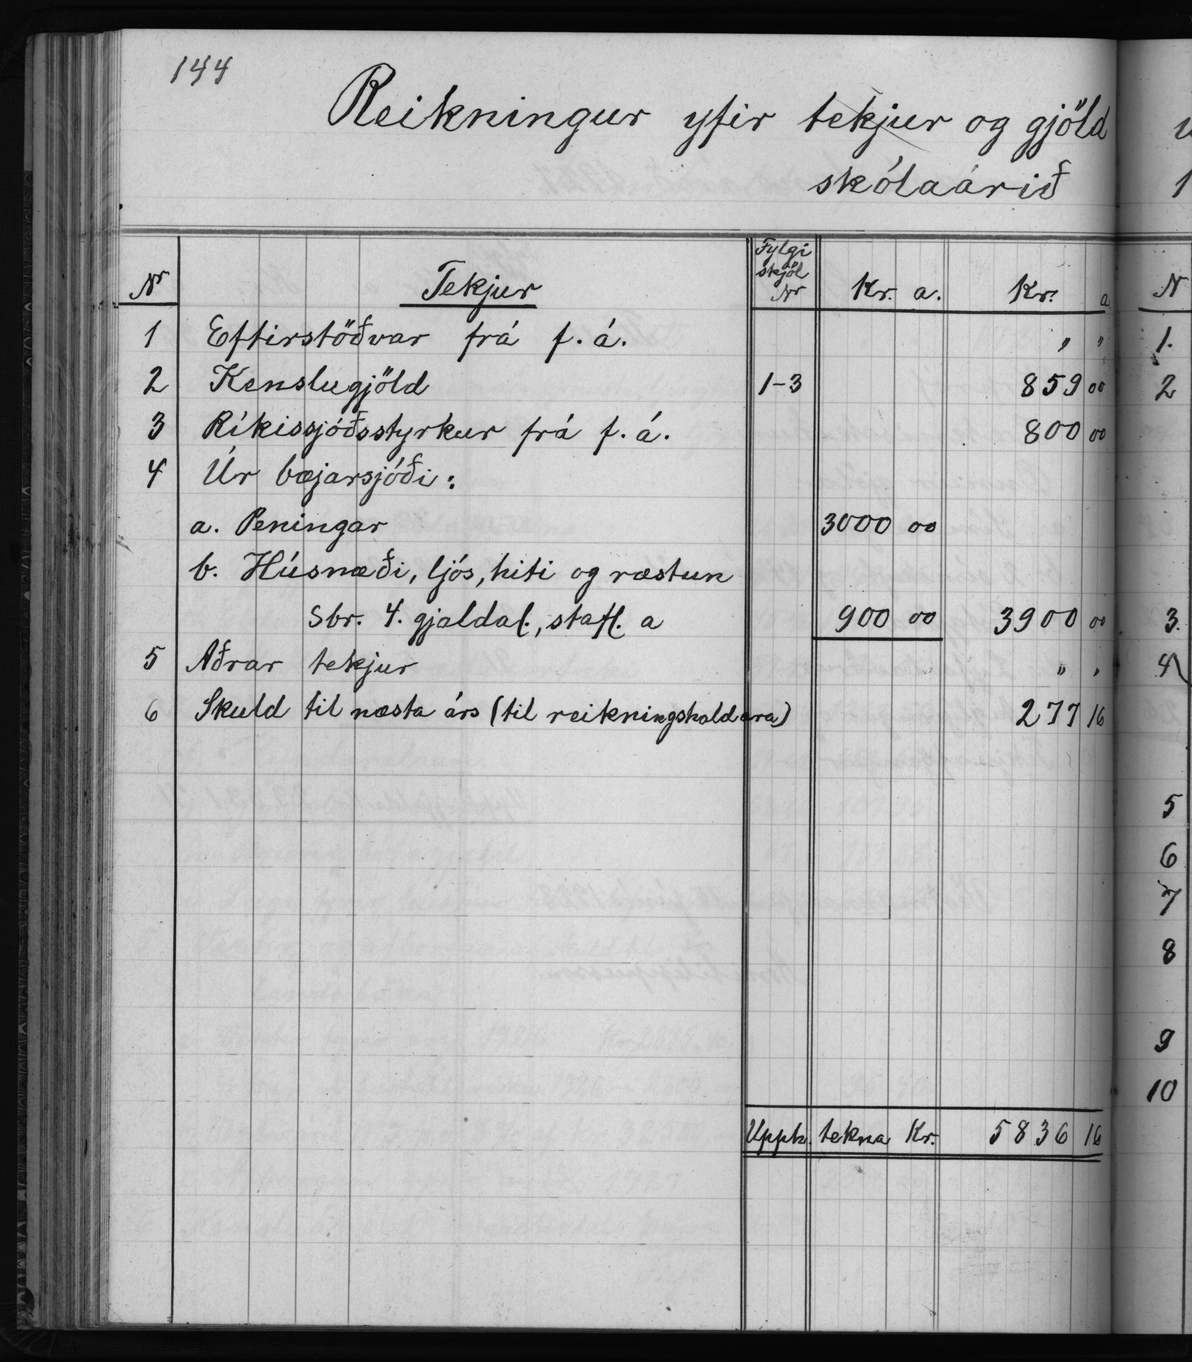 144
Reikningur yfir tekjur og gjöld
skólaárið
Nr Tekjur Fylgiskjöl Nr Kr. a. Kr. a
1 Eftirstöðvar frá f. á. „ „
2 Kenslugjöld 1-3 859 00
3 Ríkissjóðsstyrkur frá f. á. 800 00
4 Úr bæjarsjóði:
a. Peningar 3000 00
b. Húsnæði, ljós, hiti og ræstun
Sbr. 4. gjaldal., stafl. a 900 00 3900 00
5 Aðrar tekjur „ „
6 Skuld til næsta árs (til reikningshaldara) 277 16
Upph. tekna Kr. 5836 16
N
1.
2
3.
4
5
6
7
8
9
10